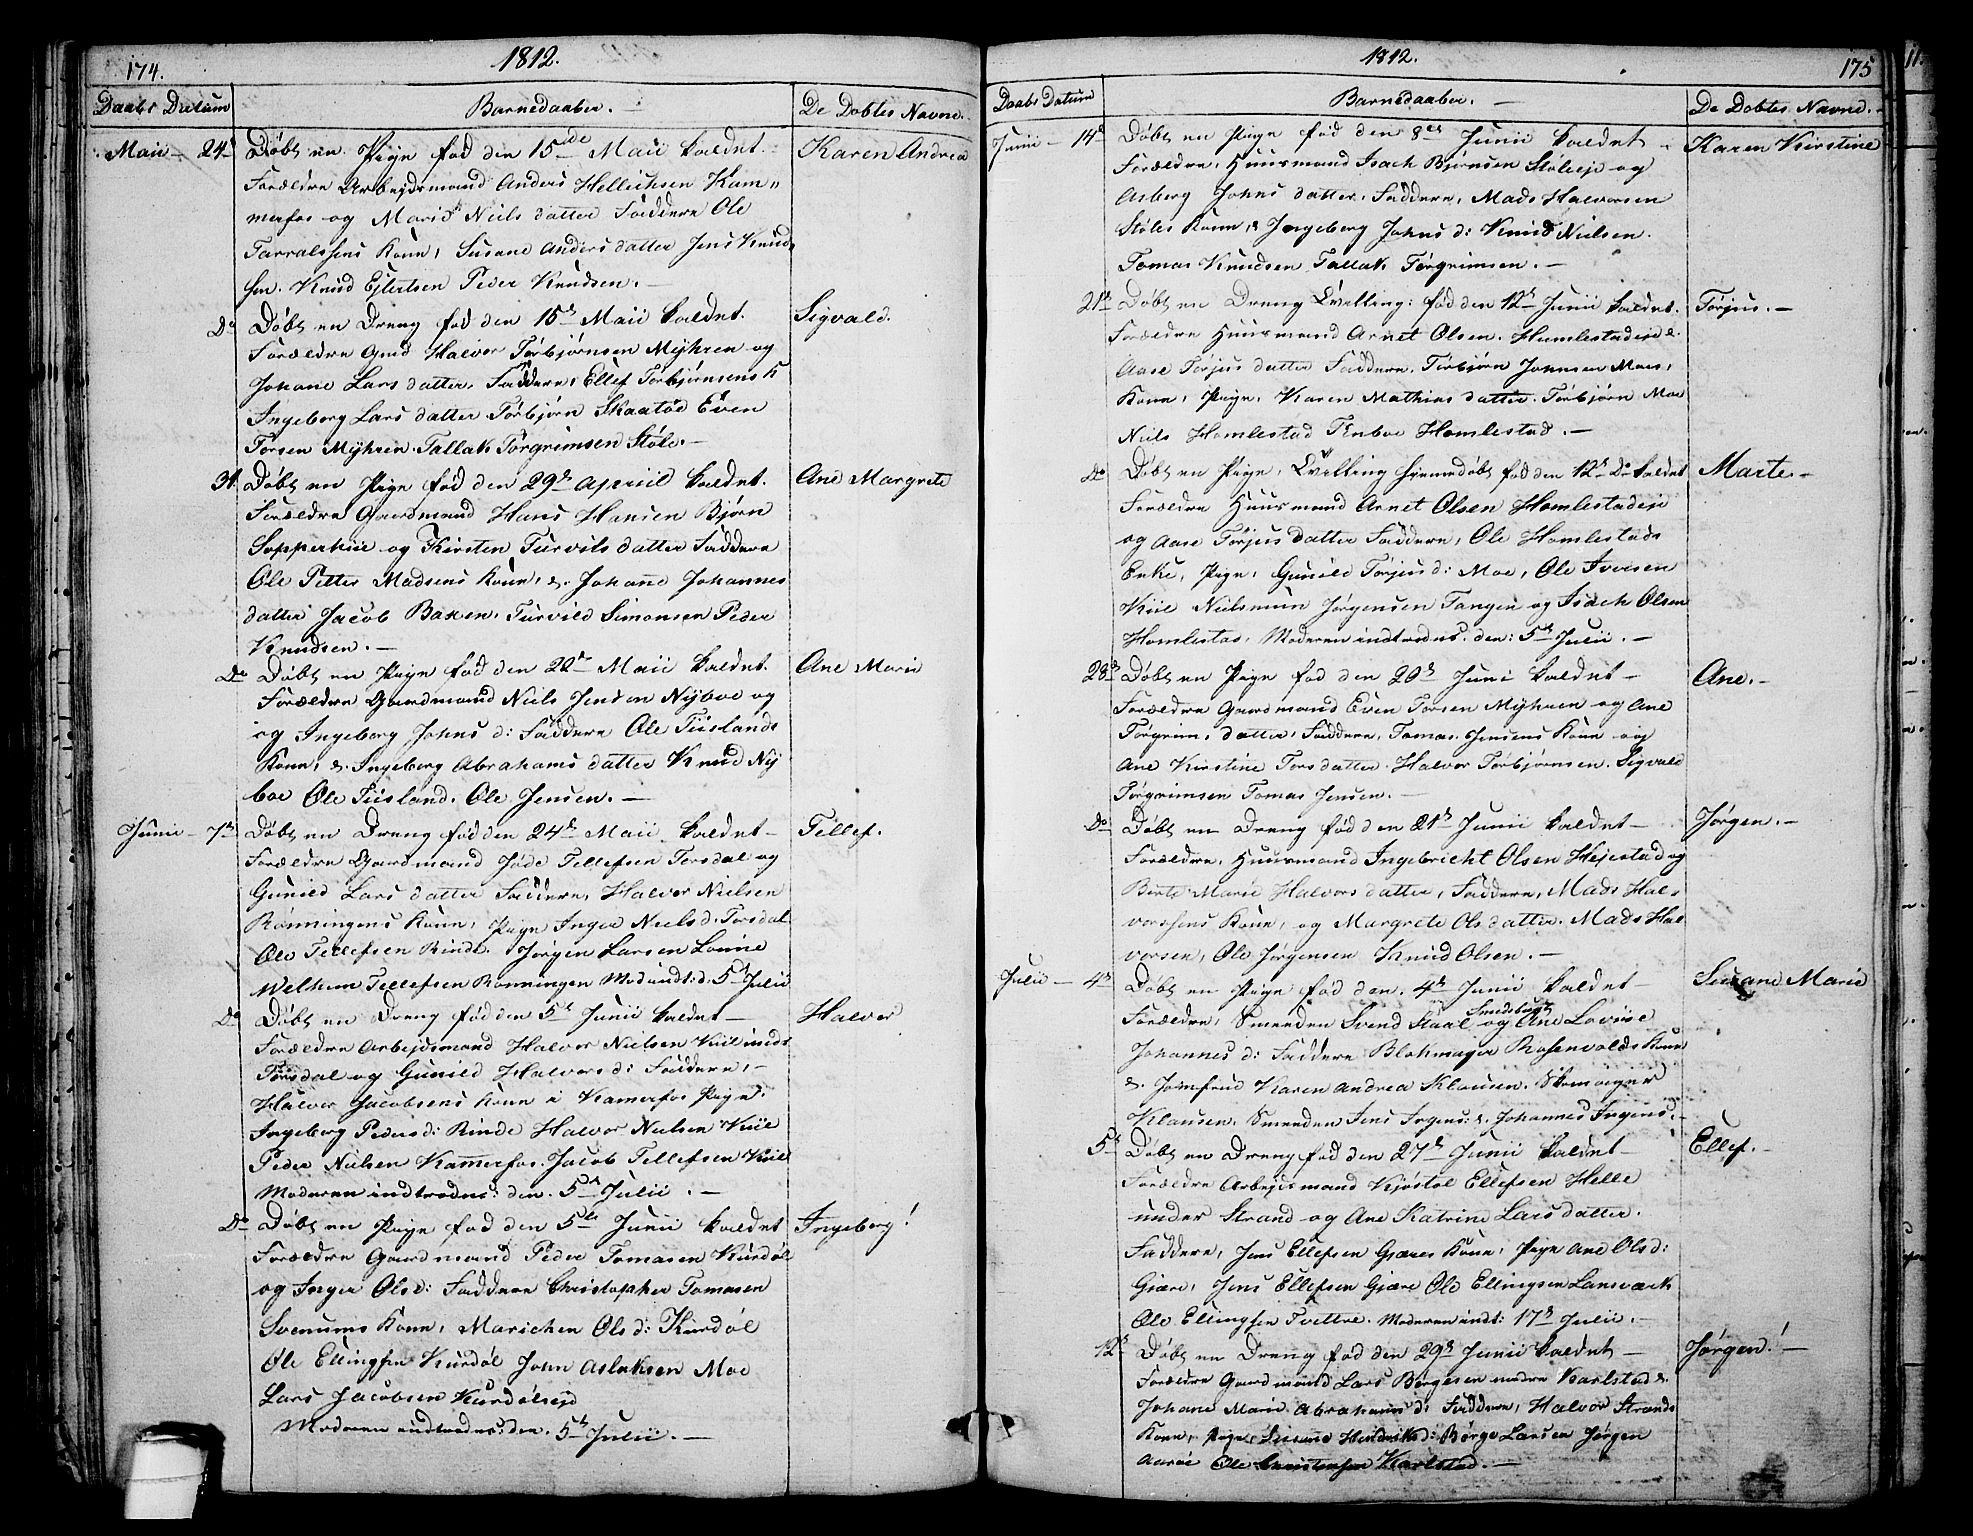 174.
1812.
Daabs Datum
Barnedaaber.
De Döbtes Navne.
Maii – 24d
Döbt en Pige fød den 15de Maii kaldet
Karen Andrea
Forældre Arbejdsmand Anders Hellichsen Kam=
merfos og Marie Niels datter Faddere Ole
Tarralssens Kone, Susane Anders datter Jens Knud
sen. Knud Ejlertsen Peder Knudsen. –
Do
Døbt en Dreng fød den 15de Maii kaldet.
Sigvald.
Forældre Gmd Halvor Torbjørnsen Mÿhren og
Johane Lars datter. Faddere, Ellef Torbjørnsens K
Ingeborg Lars datter Torbjørn Skaatød Even
Torsen Mÿhren. Tallak Torgrimsen Støle. –
31
Døbt en Pige fød den 29de Apriil kaldet.
Ane Margrete
Forældre Gaardmand Hans Hansen Bjørn
Sopperkiii og Kirsten Turvils datter Faddere
Ole Petter Madsens Kone, &. Johane Johannes
datter Jacob Baxen. Turvild Simonsen Peder
Knudsen. –
Do
Døbt en Pige fød den 22de Maii kaldet.
Ane Marie
Forældre Gaardmand Niels Jensen Nÿboe og
og Ingeborg Johns d: Faddere Ole Tiislands
Kone, &. Ingeborg Abrahams datter Knud Nÿ
boe Ole Tiisland. Ole Jensen. –
Junii – 7de
Døbt en Dreng fød den 24de Maii kaldet –
Tellef.
Forældre Gaardmand Jøde Tellefsen Torsdal og
Gunild Lars datter Faddere, Halvor Nielsen
Rønningens Kone, Pige Inger Niels d. Torsdal
Ole Tellefsen Rinde. Jørgen Larsen Lønne
Welhem Tellefsen Rønningen Mod indt: d. 5de Julii
Do
Døbt en Dreng fød den 5de Junii kaldet –
Halvor
Forældre Arbejdsmand Halvor Nielsen Kiil inds
Torsdal og Gunild Halvors d: Faddere, –
Halvor Jacobsens Kone i Kamerfos Pige.
Ingeborg Peders d: Rinde Halvor Nielsen Kiil
Peder Nielsen Kamerfos. Jacob Tellefsen Kiil
Moderen indtrædes: den. 5de Julii. –
Do
Døbt en Pige fød den 5de Junii kaldet
Ingeborg!
Forældre Gaardmand Peder Tomasen Kurdøl
og Inger Ols d: Faddere Christopher Tomasen
Svenums Kone, Marichen Ols d: Kurdøl
Ole Ellingsen Kurdøl John Aslaksen Moe
Lars Jacobsen Kurdølsejd
Moderen indtrædes: den. 5de Julii. –
1812.
175
Daabs Datum
Barnedaaber. –
De Døbtes Navne.
Junii – 14de
Døbt en Pige fød den 8de Junii kaldet –
Karen Kirstine
Forældre, Huusmand Isach Bjørnsen Støleeje og
Asberg Johns datter. Faddere, Mads Halvorsen
Støles Kone, & Ingeborg Johns d: Knud Nielsen.
Tomas Knudsen Tallak Torgrimsen. –
21de
Døbt en Dreng Tvilling: fød den 12de Junii kaldet.
Torjus. –
Forældre Huusmand Arnet Olsen. Humlestadeje &.
Aase Torjus datter Faddere. Torbjørn Johnsen Moes,
Kone, Pige, Karen Mathias datter. Torbjørn Moe
Niels Homlestad Tenboe Homlestad. –
Do
Døbt en Pige, Tvilling hjemmedøbt fød den 12de Do kaldet
Marte. –
Forældre Huusmand Arnet Olsen Homlestadeje
og Aase Torjus datter Faddere, Ole Homlestads
Enke, Pige, Gunild Torjus d: Moe, Ole Iversen
Kiil Nielsmun Jørgensen Tangen og Isach Olsen
Homlestad, Moderen indtrædes. den: 5de Julii. –
28de
Døbt en Pige fød den 20de Juni kaldet –
Ane. –
Forældre Gaardmand Even Torsen Mÿhren og Ane
Torgrims datter, Faddere, Tomas Jensens Kone og
Ane Kirstine Torsdatter. Halvor Torbjørnsen. Sigvald
Torgrimsen Tomas Jensen. –
Do
Døbt en Dreng fød den 21de Junii kaldet –
Jørgen. –
Forældre, Huusmand Ingebricht Olsen Hejestad og
Birte Marie Halvors datter, Faddere, Mads Hal-
vorsens Kone, og Margrete Ols datter. Mads Hal
vorsen, Ole Jørgensen Knud Olsen. –
Julii – 4de
Døbt en Pige fød den. 4de Junii kaldet –
Susane Marie
Smedsbugt
Forældre, Smeden Svend Staal og Ane Lovise
Johannes d: Faddere Blokmager Rosenvolds Kone
&. Jomfrue Karen Andrea Klausen.
Klausen. Smeden Jens Jngens: &. Johannes Ingens: –
5te
Døbt en Dreng fød den 27de Junii kaldet –
Ellef. –
Forældre Arbejdsmand Kjøstol Ellefsen Helle
under Strand og Ane Katrine Lars datter.
Faddere, Jens Ellefsen Gjæres Kone, Pige Ane Ols d:
Gjære, Jens Ellefsen Gjære Ole Ellingsen Lansværk
Ole Ellingsen Tvettre. Moderen indt: 17de Julii. –
12te
Døbt en Dreng fød den 29de Junii kaldet –
Jørgen! –
Forældre Gaardmand Lars Børgesen nedre Karlstad &.
Johane Marie Abrahams d: Faddere, Halvor Strands
Kone, Pige, Susane Hendriks d: Børge Larsen Jørgen
Aarøe Ole Christensen Karlstad. –